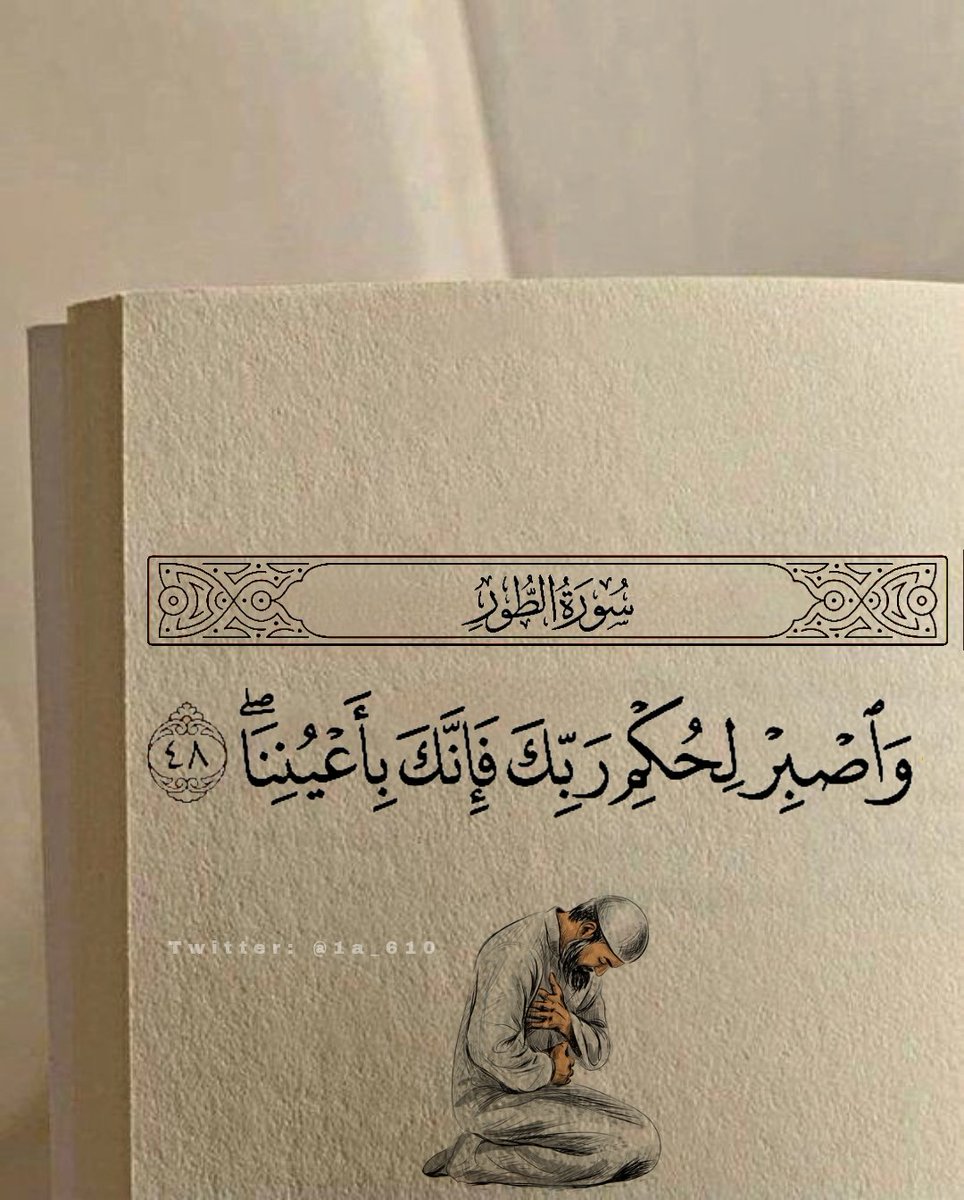 سُورَةُ الطُّورِ
وَٱصْبِرْ لِحُكْمِ رَبِّكَ فَإِنَّكَ بِأَعْيُنِنَاۖ ٤٨
Twitter: @1a_610